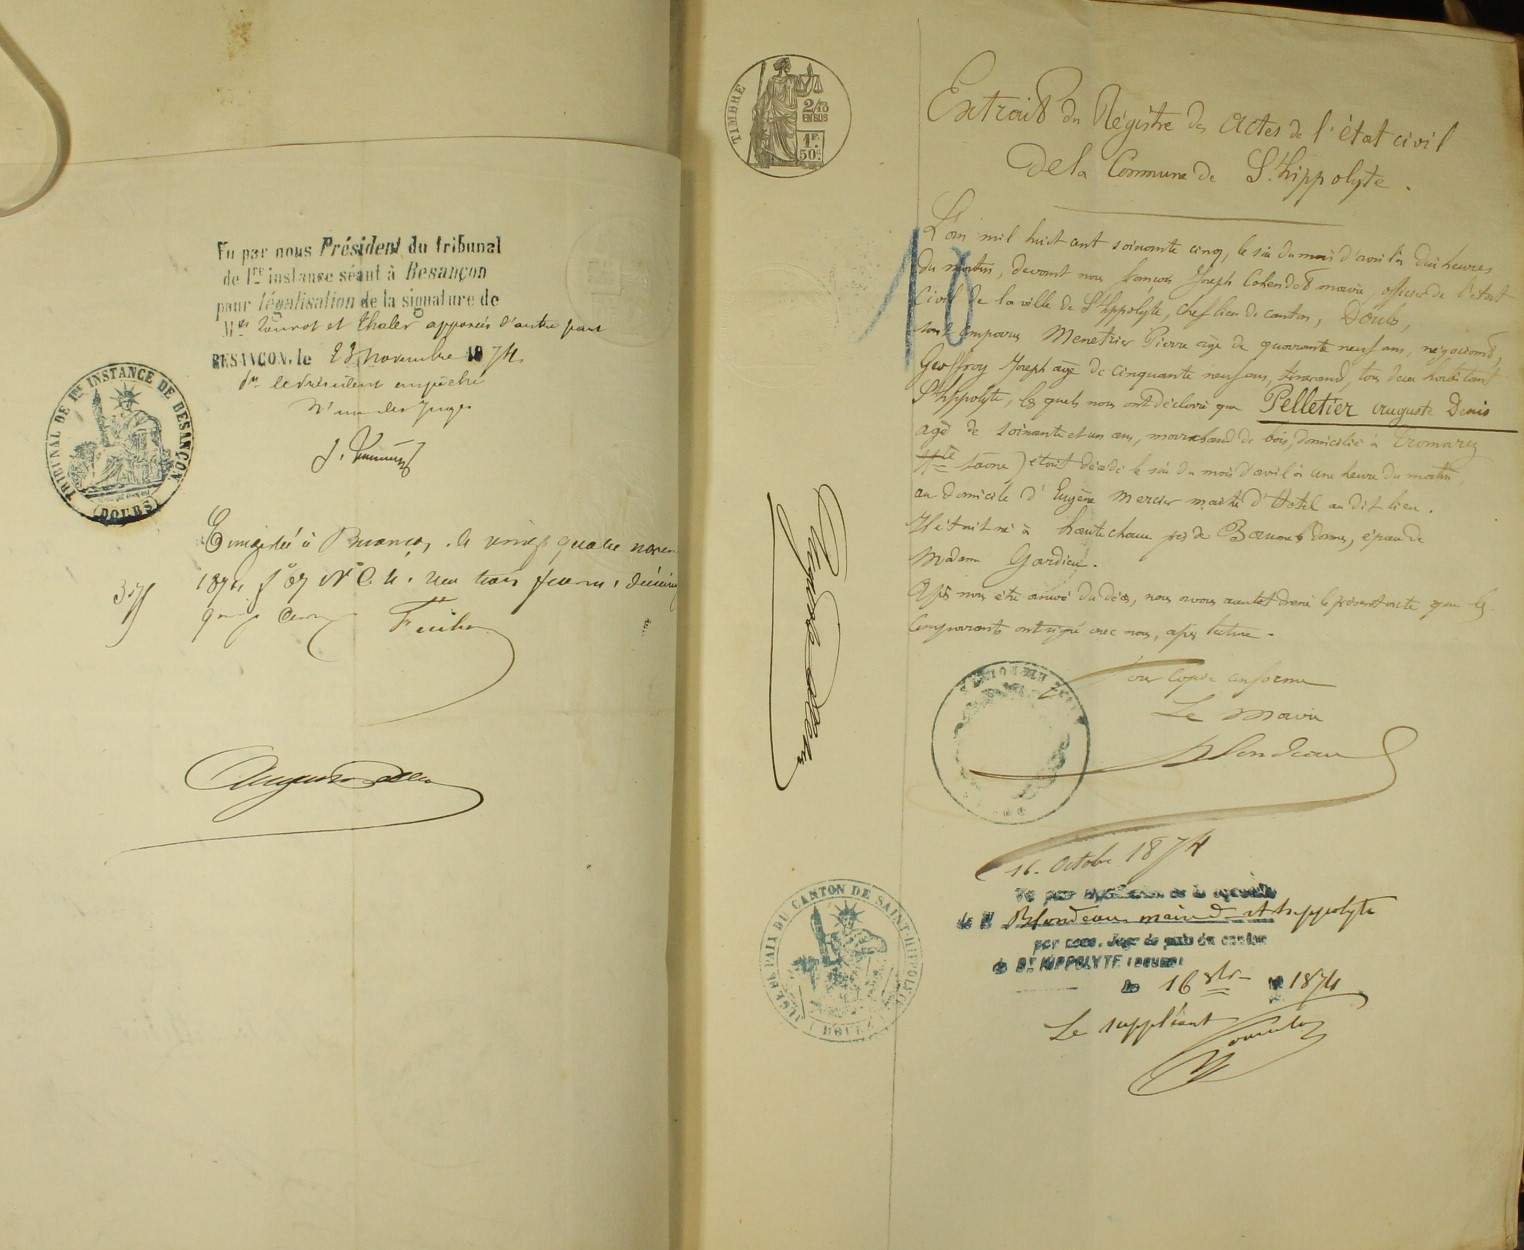 Vu par nous Président du tribunal
de 1re instance séant à Besançon
pour légalisation de la signature de
Mes et Thaler apposés d'autre part
BESANÇON, le 23 Novembre 1874
Pr le Président empêché
L'un des Juges
TRIBUNAL DE PRE INSTANCE DE BESANÇON
(DOUBS)
Enregistré à Besançon, le vingt quatre novem
1874, fo 87 No C. 4. Reçu trois francs, décimes
TIMBRE
2/10
EN SUS
1F.
50c.
Extrait du Régistre des actes de l'état civil
de la Commune de St hippolyte.
10
L'an mil huit cent soixante cinq, le six du mois d'avril à dix heures
du matin, devant nous françois Joseph Cohendet maire, officier de l'état
Civil de la ville de St hippolyte, chef lieu de canton, Doubs,
sont comparus Menetrier Pierre age de quarante neuf ans, négociant,
Geoffroy Joseph agé de cinquante neuf ans, tisserand, tous deux habitant
St hippolyte, les quels nous ont déclaré que Pelletier auguste Denis
agé de soixante et un ans, marchand de bois, domicilié à Tromarey
(Hte Saône) était décédé le six du mois d'avril à une heure du matin,
au domicile d'Eugène Mercier maitre d'hotel au dit lieu.
Il était né à hautechaux près de Baume les dames, époux de
Madame Gardien.
Après nous être assuré du décès, nous avons aussitôt dressé le présent acte que les
Comparants ont signé avec nous, après lecture.
Pour copie conforme
Le Maire
Blondeau
16 Octobre 1874
Vu pour légalisation de la signature
de M Blondeau maire de St hippolyte
par nous, Juge de paix du canton
de ST HIPPOLYTE (DOUBS)
le 16 8bre 1874
Le suppléant
JUGE DE PAIX DU CANTON DE SAINT-HIPPOLYTE
(DOUBS)